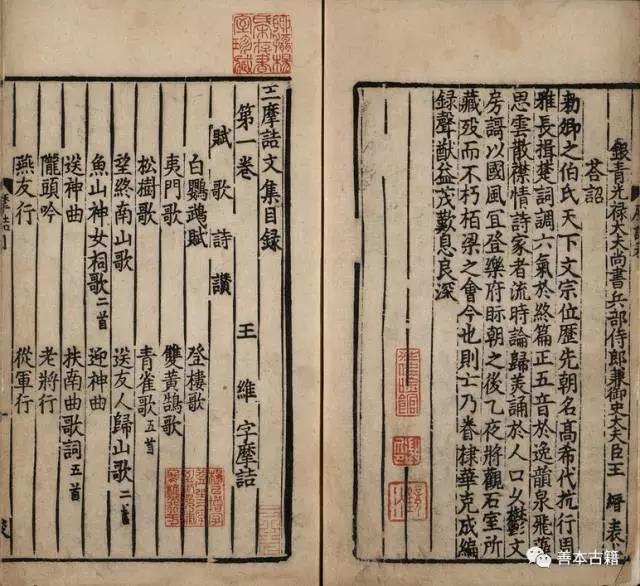 銀青光祿大夫尚書兵部侍郎兼御史大夫臣王 縉 表上
荅詔
勑卿之伯氏天下文宗位歷先朝名高希代抗行周
雅長揖楚詞調六氣於終篇正五音於逸韻泉飛藻
思雲散襟情詩家者流時論歸美誦於人口久鬱文
房謌以國風宜登樂府旰朝之後乙夜將觀石室所
藏歿而不朽栢梁之會今也則亡乃眷棣華克成編
録聲猷益茂歎息良深
王摩詰文集目録
第一卷 王 維 字摩詰
賦 歌 詩 讚
白鸚鵡賦 登樓歌
夷門歌 雙黃鵠歌
松樹歌 青雀歌五首
望終南山歌 送友人歸山歌二首
魚山神女祠歌二首 迎神曲
送神曲 扶南曲歌詞五首
隴頭吟 老將行
燕友行 從軍行
善本古籍